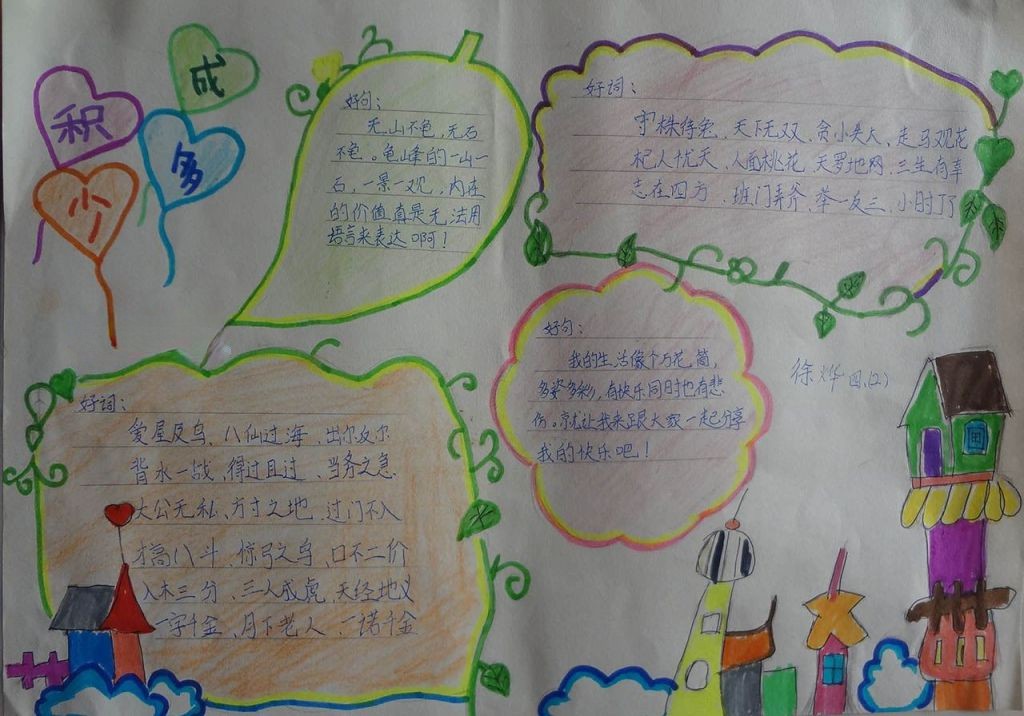 积
少
成
多
好句：
无山不龟，无石
不龟。龟峰的一山一
石，一景一观，内在
的价值真是无法用
语言来表达啊！
好词：
守株待兔、天下无双、贪小失大、走马观花
杞人忧天、人面桃花、天罗地网、三生有幸
志在四方、班门弄斧、举一反三、小时了了
好句：
我的生活像个万花筒，
多姿多彩，有快乐同时也有悲
伤。就让我来跟大家一起分享
我的快乐吧！
徐烨 四、(2)
好词：
爱屋及乌、八仙过海、出尔反尔
背水一战、得过且过、当务之急
大公无私、方寸之地、过门不入
才高八斗、惊弓之鸟、口不二价
入木三分、三人成虎、天经地义
一字千金、月下老人、一诺千金